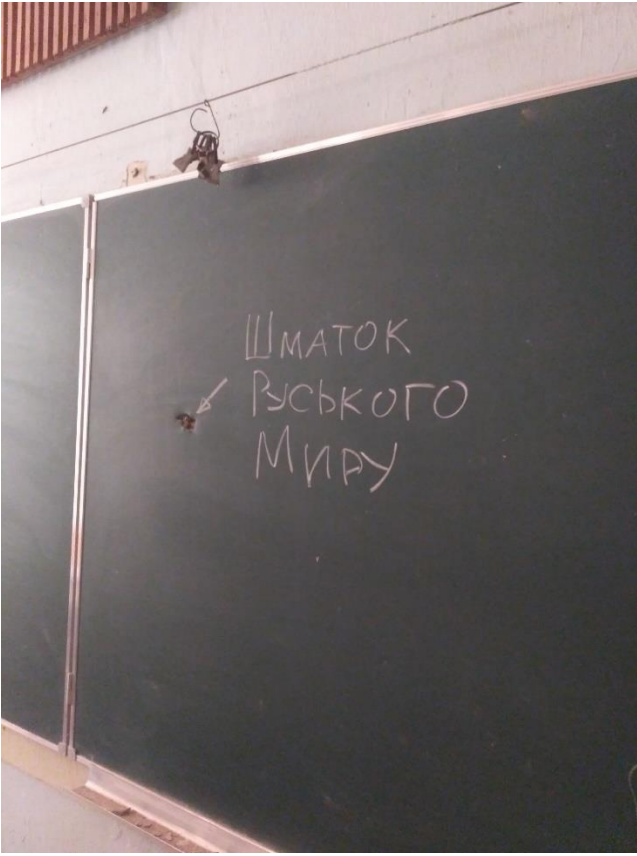 Шматок
Руського
Миру